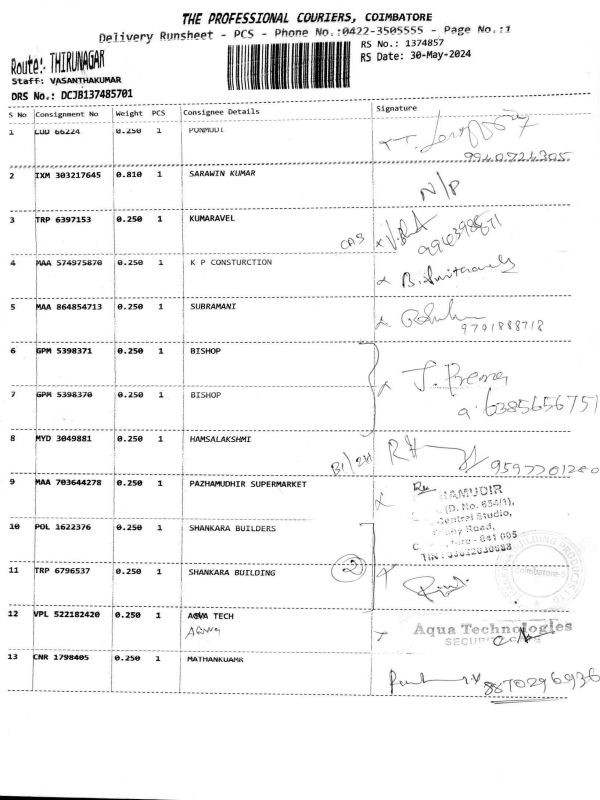 THE PROFESSIONAL COURIERS, COIMBATORE
Delivery Runsheet - PCS - Phone No.:0422-3505555 - Page No.:1
Route:- THIRUNAGAR
Staff: VASANTHAKUMAR
DRS No.: DCJB137485701
RS No.: 1374857
RS Date: 30-May-2024
S No Consignment No Weight PCS Consignee Details Signature
1 LUD 66224 0.250 1 PONMUDI
9940724305
2 IXM 303217645 0.810 1 SARAWIN KUMAR N/P
3 TRP 6397153 0.250 1 KUMARAVEL
4 MAA 574975870 0.250 1 K P CONSTURCTION
5 MAA 864854713 0.250 1 SUBRAMANI
9791888718
6 GPM 5398371 0.250 1 BISHOP
7 GPM 5398370 0.250 1 BISHOP
6385656751
8 MYD 3049881 0.250 1 HAMSALAKSHMI
9597701280
9 MAA 703644278 0.250 1 PAZHAMUDHIR SUPERMARKET
HAMUDIR
(D. No. 654/1),
Central Studio,
Road,
641 005
10 POL 1622376 0.250 1 SHANKARA BUILDERS
11 TRP 6796537 0.250 1 SHANKARA BUILDING 2
12 VPL 522182420 0.250 1 AQVA TECH
Aqua Technologies
13 CNR 1798405 0.250 1 MATHANKUAMR
8870296936